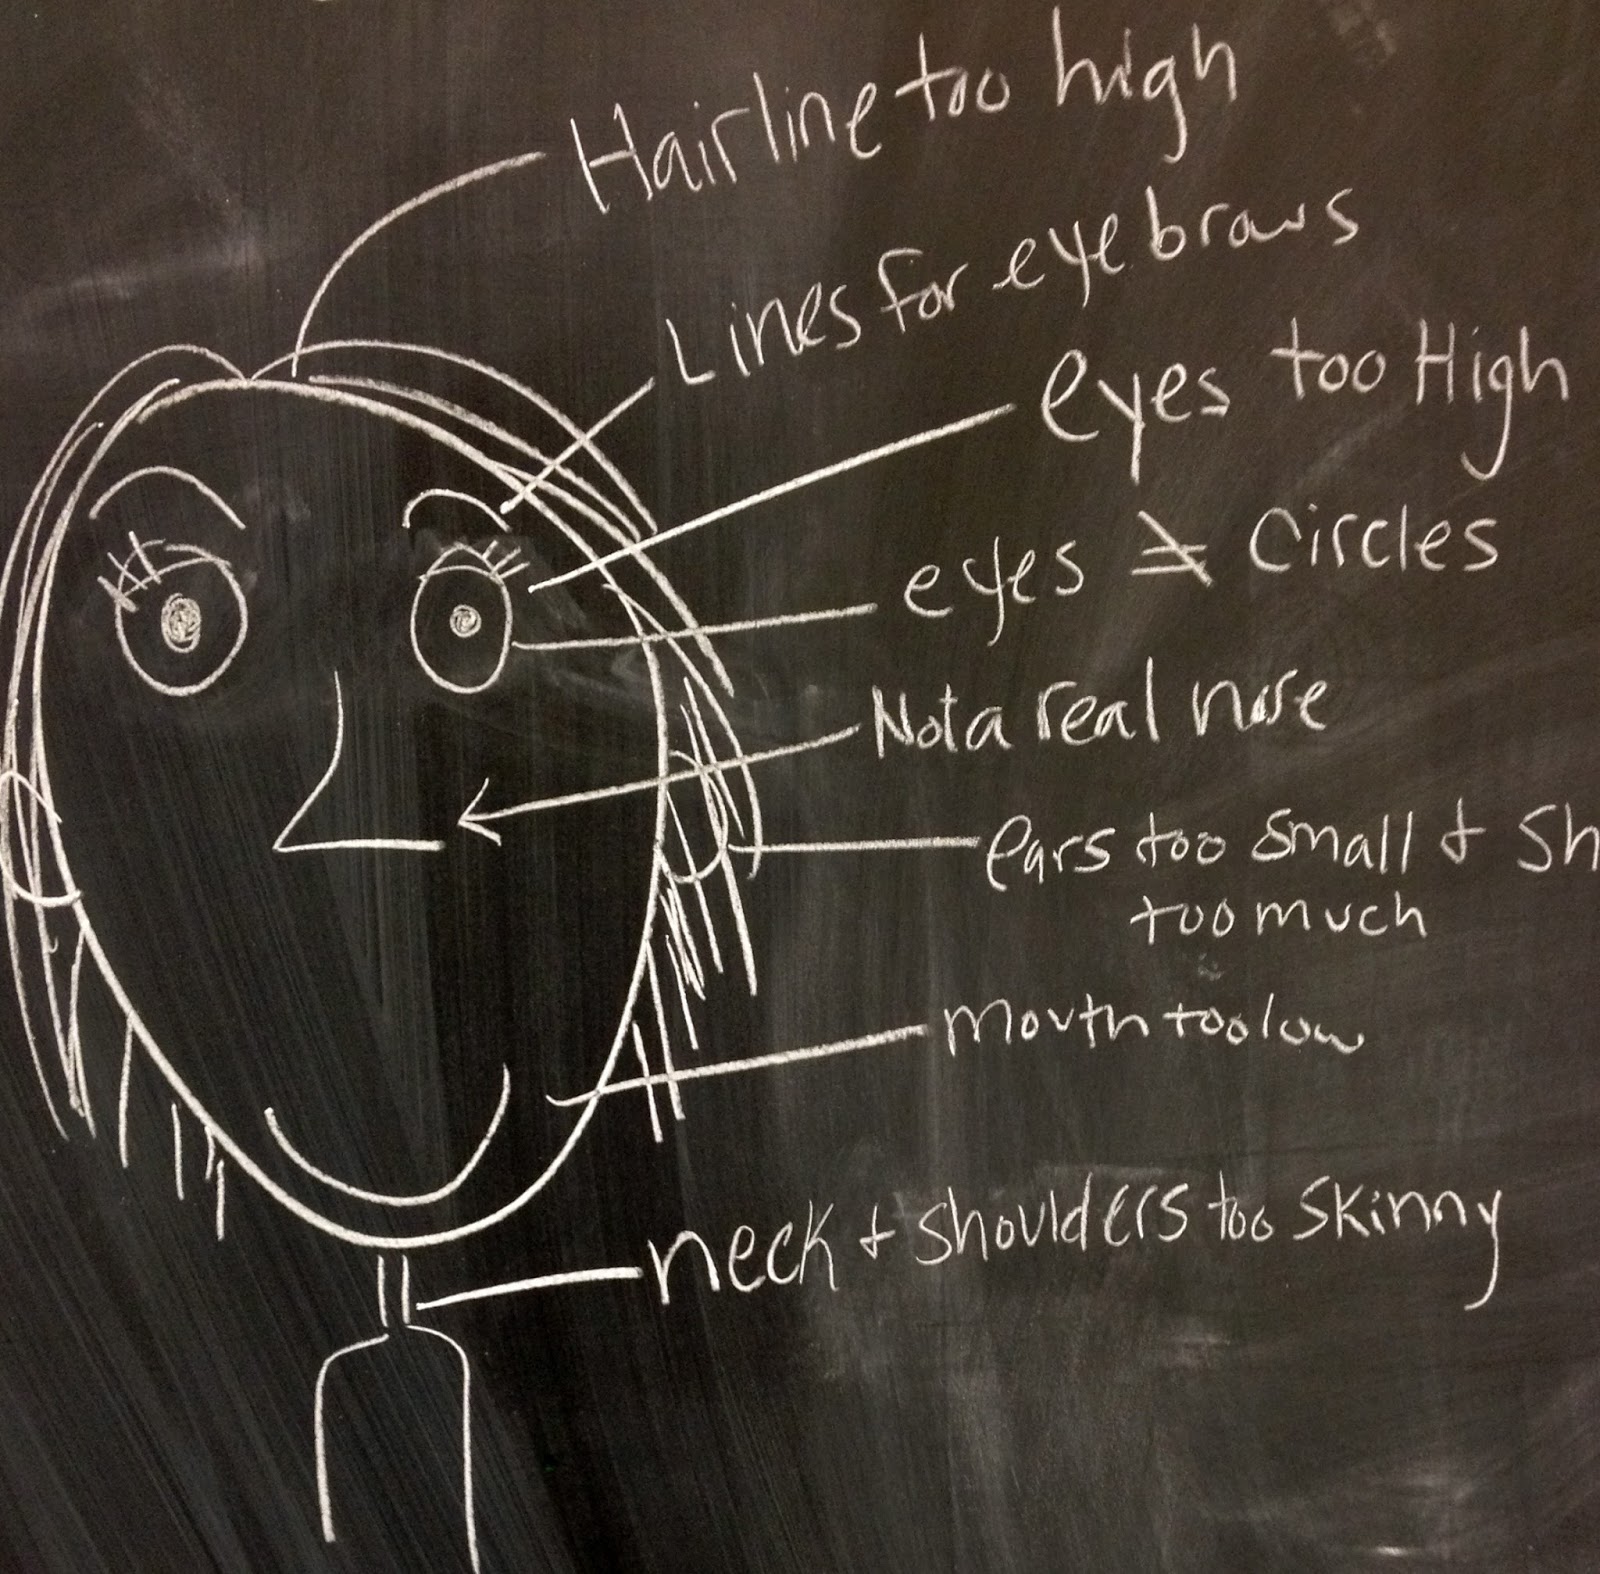 Hairline too high
Lines for eyebrows
eyes too High
eyes ≠ Circles
Not a real nose
ears too small + Sh
too much
mouth too low
neck + shoulders too skinny